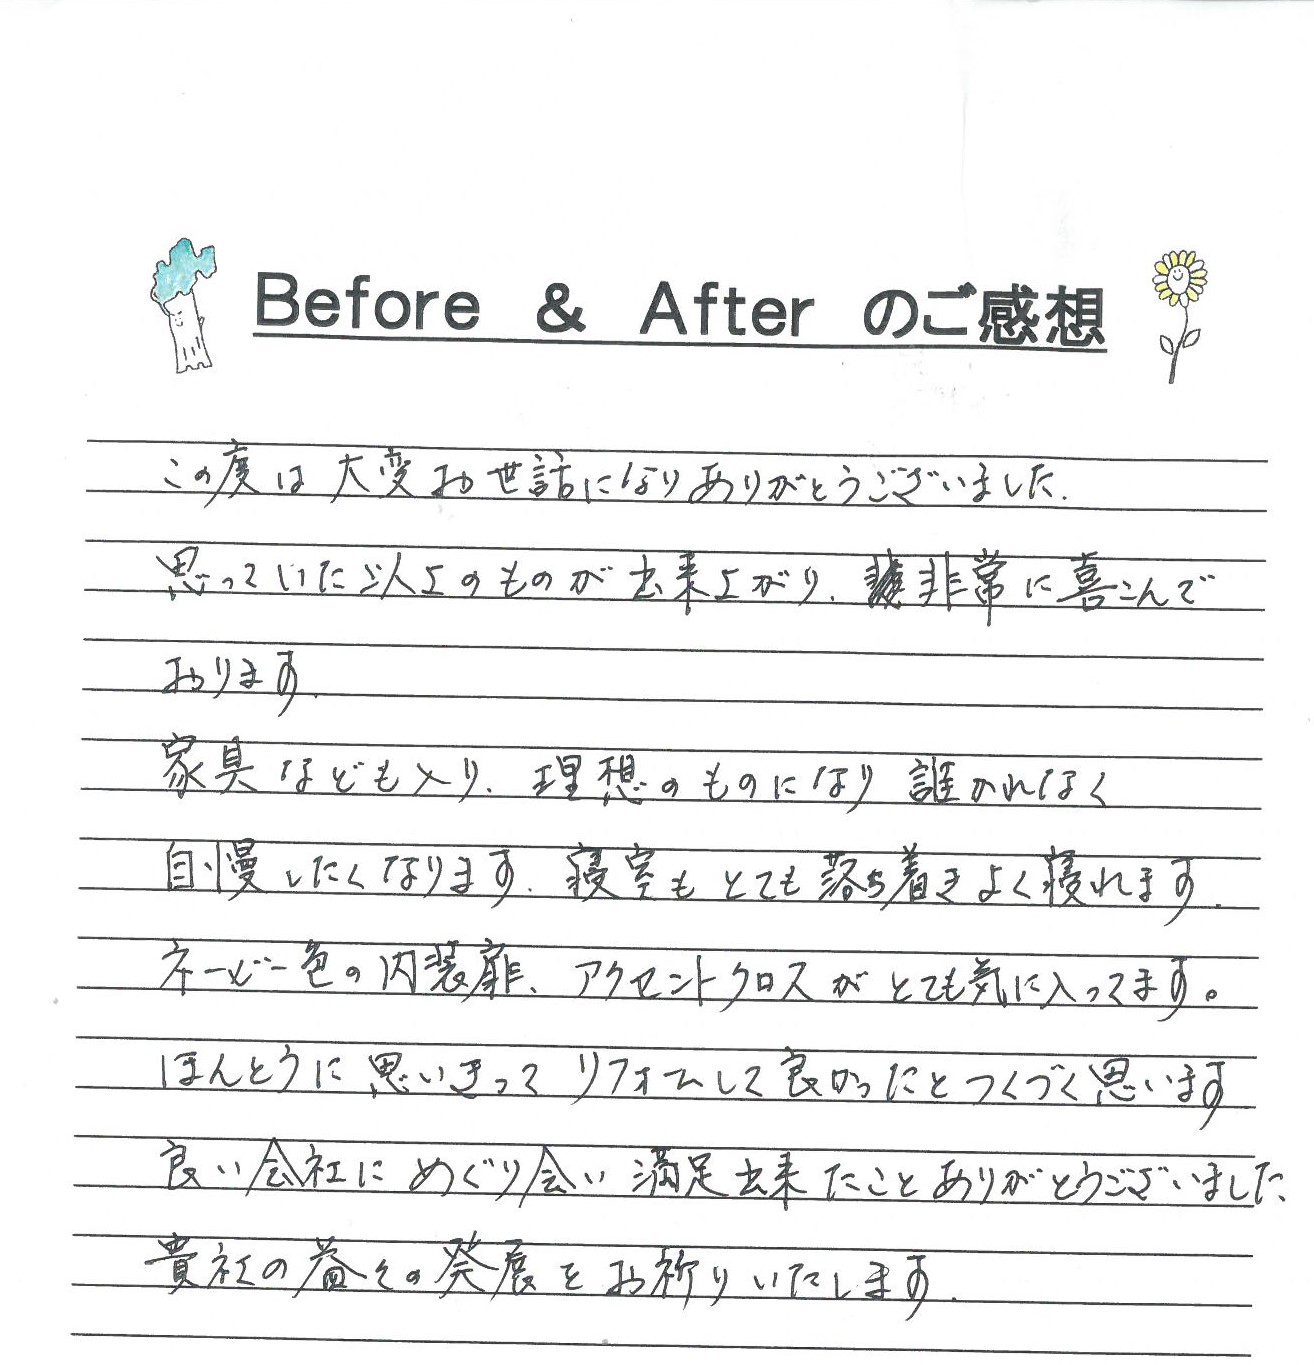 Before & After のご感想
この度は大変お世話になりありがとうございました.
思っていた以上のものが出来上がり、非常に喜こんで
おります.
家具なども入り、理想のものになり 誰かれなく
自慢したくなります. 寝室もとても落ち着きよく寝れます.
ネービー色の内装扉、アクセントクロスがとても気に入ってます。
ほんとうに思いきってリフォームして良かったとつくづく思います
良い会社にめぐり会い満足出来たことありがとうございました、
貴社の益々の発展をお祈りいたします.